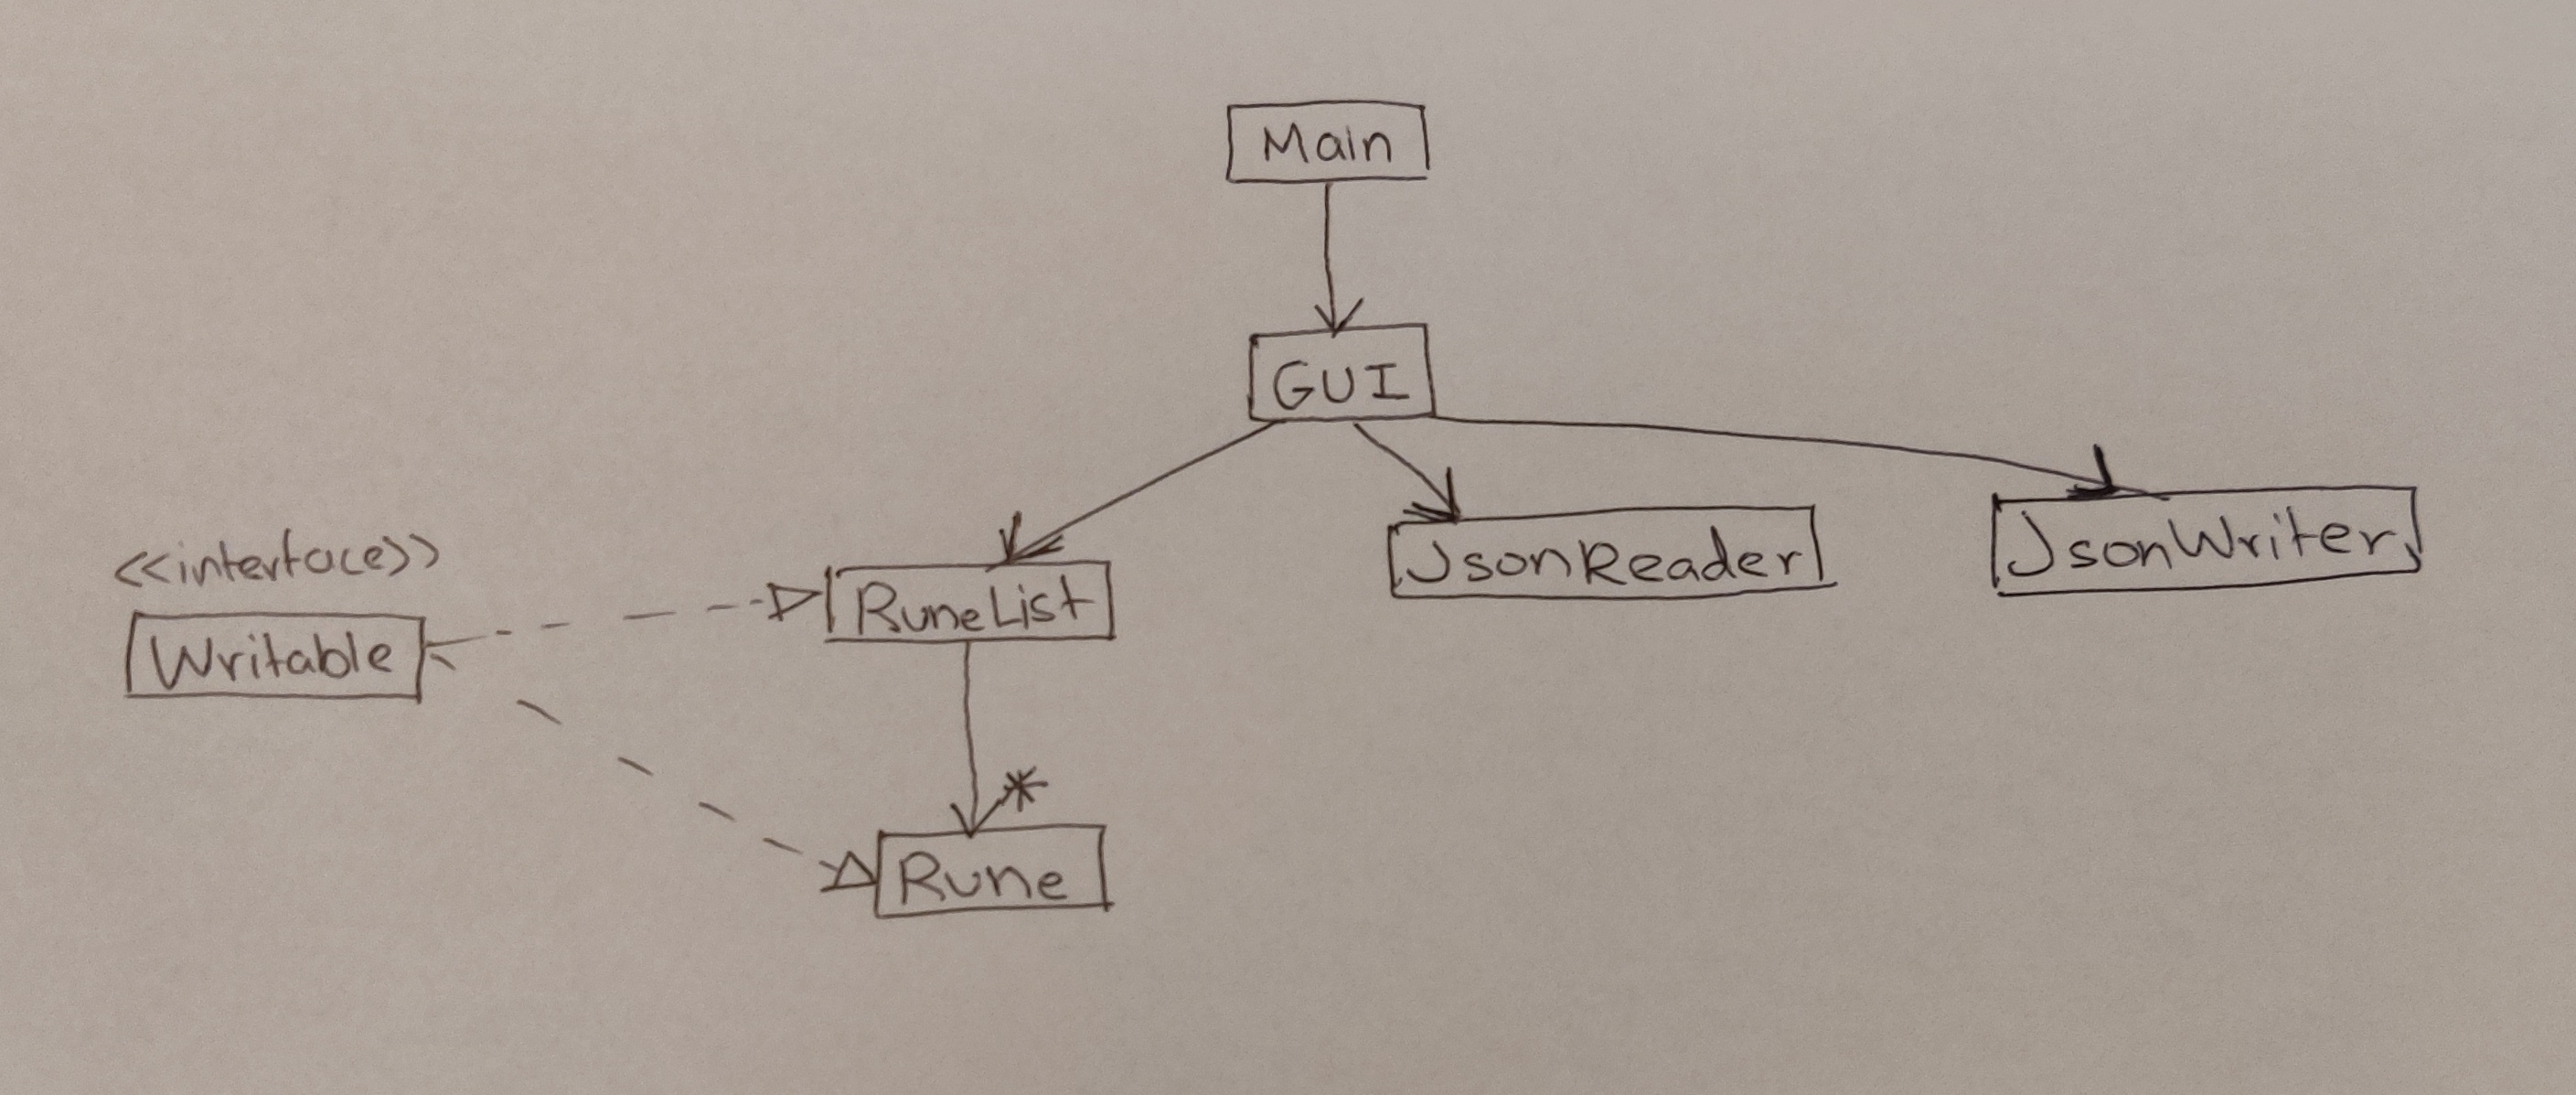 Main
GUI
<<interface>>
Writable
RuneList
JsonReader
JsonWriter
*
Rune